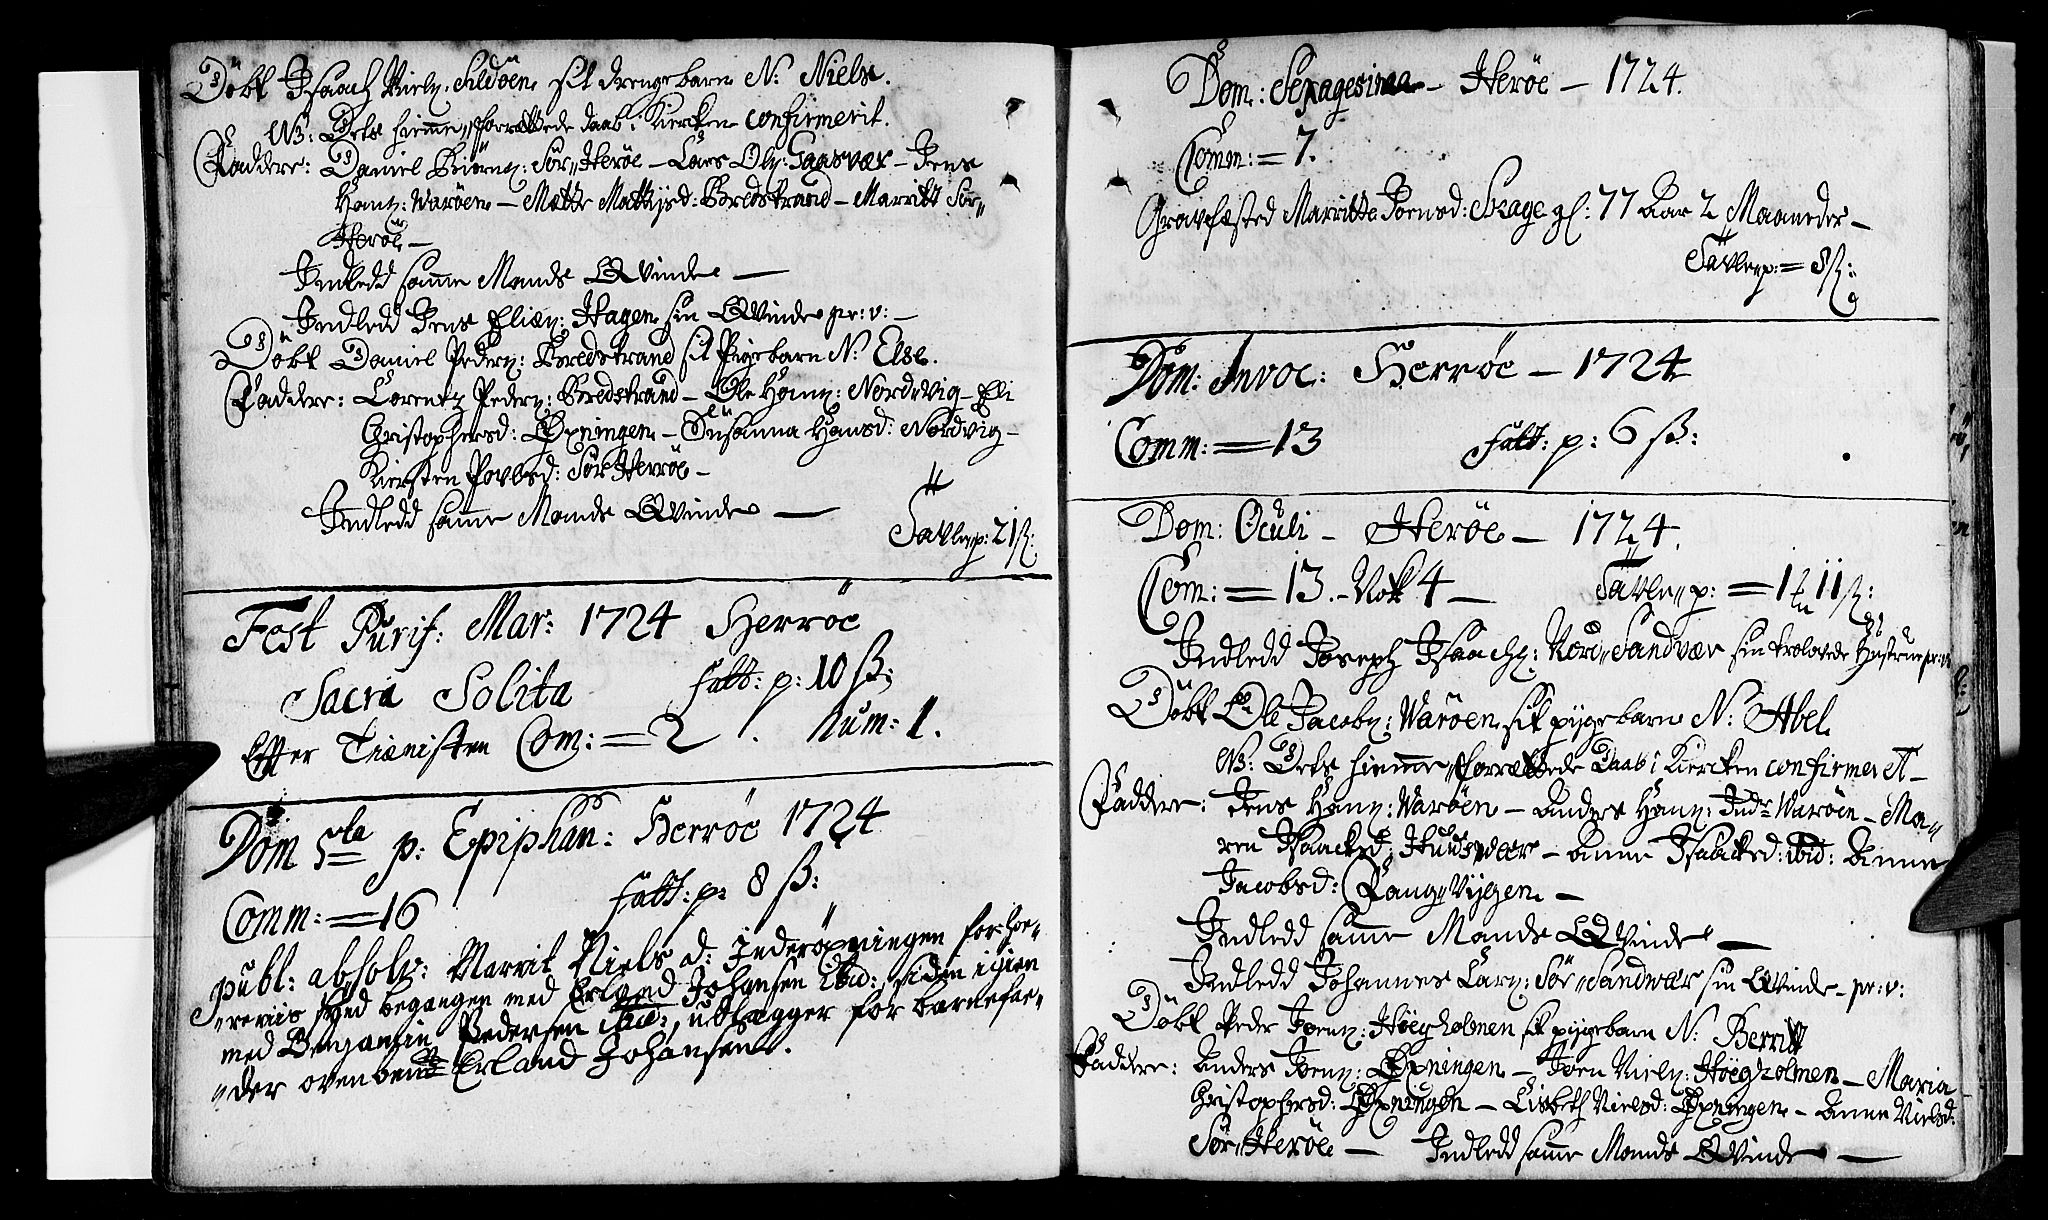 Döbt Isaach Niels: Sildöen sit drengebarn N: Niels.
NB: Dets hiemme forrettede daab i Kircken confirmerit.
Faddere: Daniel Biörns: Sör Heröe – Lars Ols: Gaasvær – Jens
Hans: Waröen – Mette Mathisd: Bredstrand – Marritt Sör
Heröe –
Indledd samme Mands QVinde —
Indledd Jens Elias: Hagen sin QVinde pr: v: –
Döbt Daniel Peders: Bredstrand sit Pigebarn N: Else.
Faddere: Lorentz Peders: Bredstrand – Ole Hans: Nordvig – Eli
Christophersd: Öxningen – Susanna Hansd: Nordvig –
Kiersten Povelsd: Sör Herröe –
Indledd samme Mands QVinde —
Tavle p: 21 ß:
Fest Purif: Mar: 1724 Herröe
Sacra Solita fatt: p: 10 ß:
Effter Tienisten Com: = 2. Num: 1.
Dom 5ta p: Epiphan: Herröe 1724
Comm: = 16 fatt: p: 8 ß:
publ: absolv: Marrit Niels d: Inderöxningen for hoe-
reriis sÿnd begangen med Erland Johansen ibid: siden igien
med Benjamin Pedersen ibid:, udlægger for barnefae-
der ovenbemte Erland Johansen.
Dom: Sexagesima – Heröe – 1724.
Comm: = 7.
Gravfæsted Marritte Joensd: Skage gl: 77 Aar 2 Maaneder –
Tavle p: = 8 ß:
Dom: Invoc: Herröe – 1724
Comm: = 13 fatt: p: 6 ß:
Dom: Oculi – Heröe – 1724.
Com: = 13. – Nok 4 — Tavle p: = 1 11 ß:
Indledd Joseph Isaachs: Nord Sandvær sin trolovede Hustrue pr: v:
Döbt Ole Jacobs: Waröen sit pigebarn N: Abel
NB: Dets hiemme forrettede Daab i Kircken confirmeret –
Faddere: Jens Hans: Waröen – Anders Hans: Indr Waröen – Ma-
ren Isaachsd: Husvær – Anne Isaachsd: ibid: Anne
Jacobsd: Tang Viigen –
Indledd samme Mands QVinde —
Indledd Johannes Lars: Sör Sandvær sin QVinde – pr: v:
Döbt Peder Joens: Höegholmen sit pigebarn N: Berritt
Faddere: Anders Joens: Öxningen – Joen Niels: Höegholmen – Maria
Christophersd: Öxningen – Lisbeth Nielsd: Öxningen – Anne Nielsd:
Sör Heröe — Indledd samme Mands QVinde —